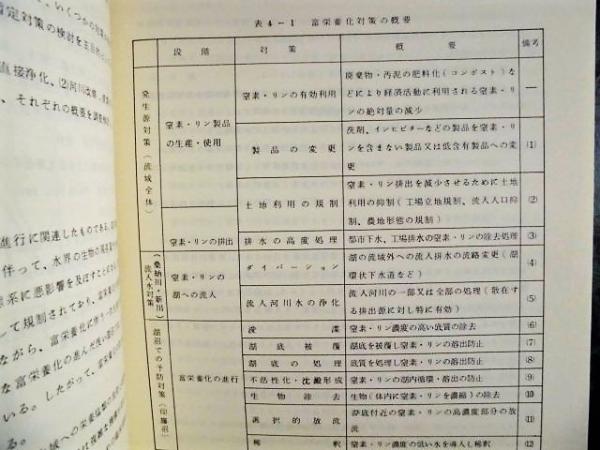 表4-1 富栄養化対策の概要
段階 対策 概要 備考
発生源対策(流域全体)
窒素・リン製品の生産・使用
窒素・リンの有効利用
廃棄物・汚泥の肥料化(コンポスト)な
どにより経済活動に利用される窒素・リ
ンの絶対量の減少
―
製品の変更
洗剤、インヒビターなどの製品を窒素・リ
ンを含まない製品又は低含有製品への変
更
(1)
土地利用の規制
窒素・リン排出を減少させるために土地
利用の抑制(工場立地規制、流入人口抑
制、農地形態の規制)
(2)
窒素・リンの排出
排水の高度処理
都市下水、工場排水の窒素・リンの除去処理
(3)
流入水対策
(桑納川・新川)
窒素・リンの
湖への流入
ダイバーション
湖の流域外への流入排水の流路変更(湖
環状下水道など)
(4)
流入河川水の浄化
流入河川の一部又は全部の処理(散在す
る排出源に対し特に有効)
(5)
湖沼での予防対策(印旛沼)
富栄養化の進行
浚渫
窒素・リン濃度の高い底質の除去
(6)
湖底被覆
湖底を被覆し窒素・リンの溶出防止
(7)
湖底の処理
底質を処理し窒素・リンの溶出防止
(8)
不活性化・沈澱形成
窒素・リンの湖内循環・溶出の防止
(9)
生物除去
生物(体内に窒素・リンを濃縮)の除去
(10)
選択的放流
湖底付近の窒素・リンの高濃度部分の放
流
(11)
稀釈
窒素・リン濃度の低い水を導入し稀釈
(12)
、いくつかの
定対策の検討を主目的
直接浄化、(2)河川改修
、それぞれの概要を調
進行に関連したものである
伴って、水界の生物の
系に悪影響を及ぼすことが
して規制されており、富栄養
ながら、富栄養化に伴う
な富栄養化の進んだ浅い
いる。したがって、富栄養
域への栄養塩類の
る。